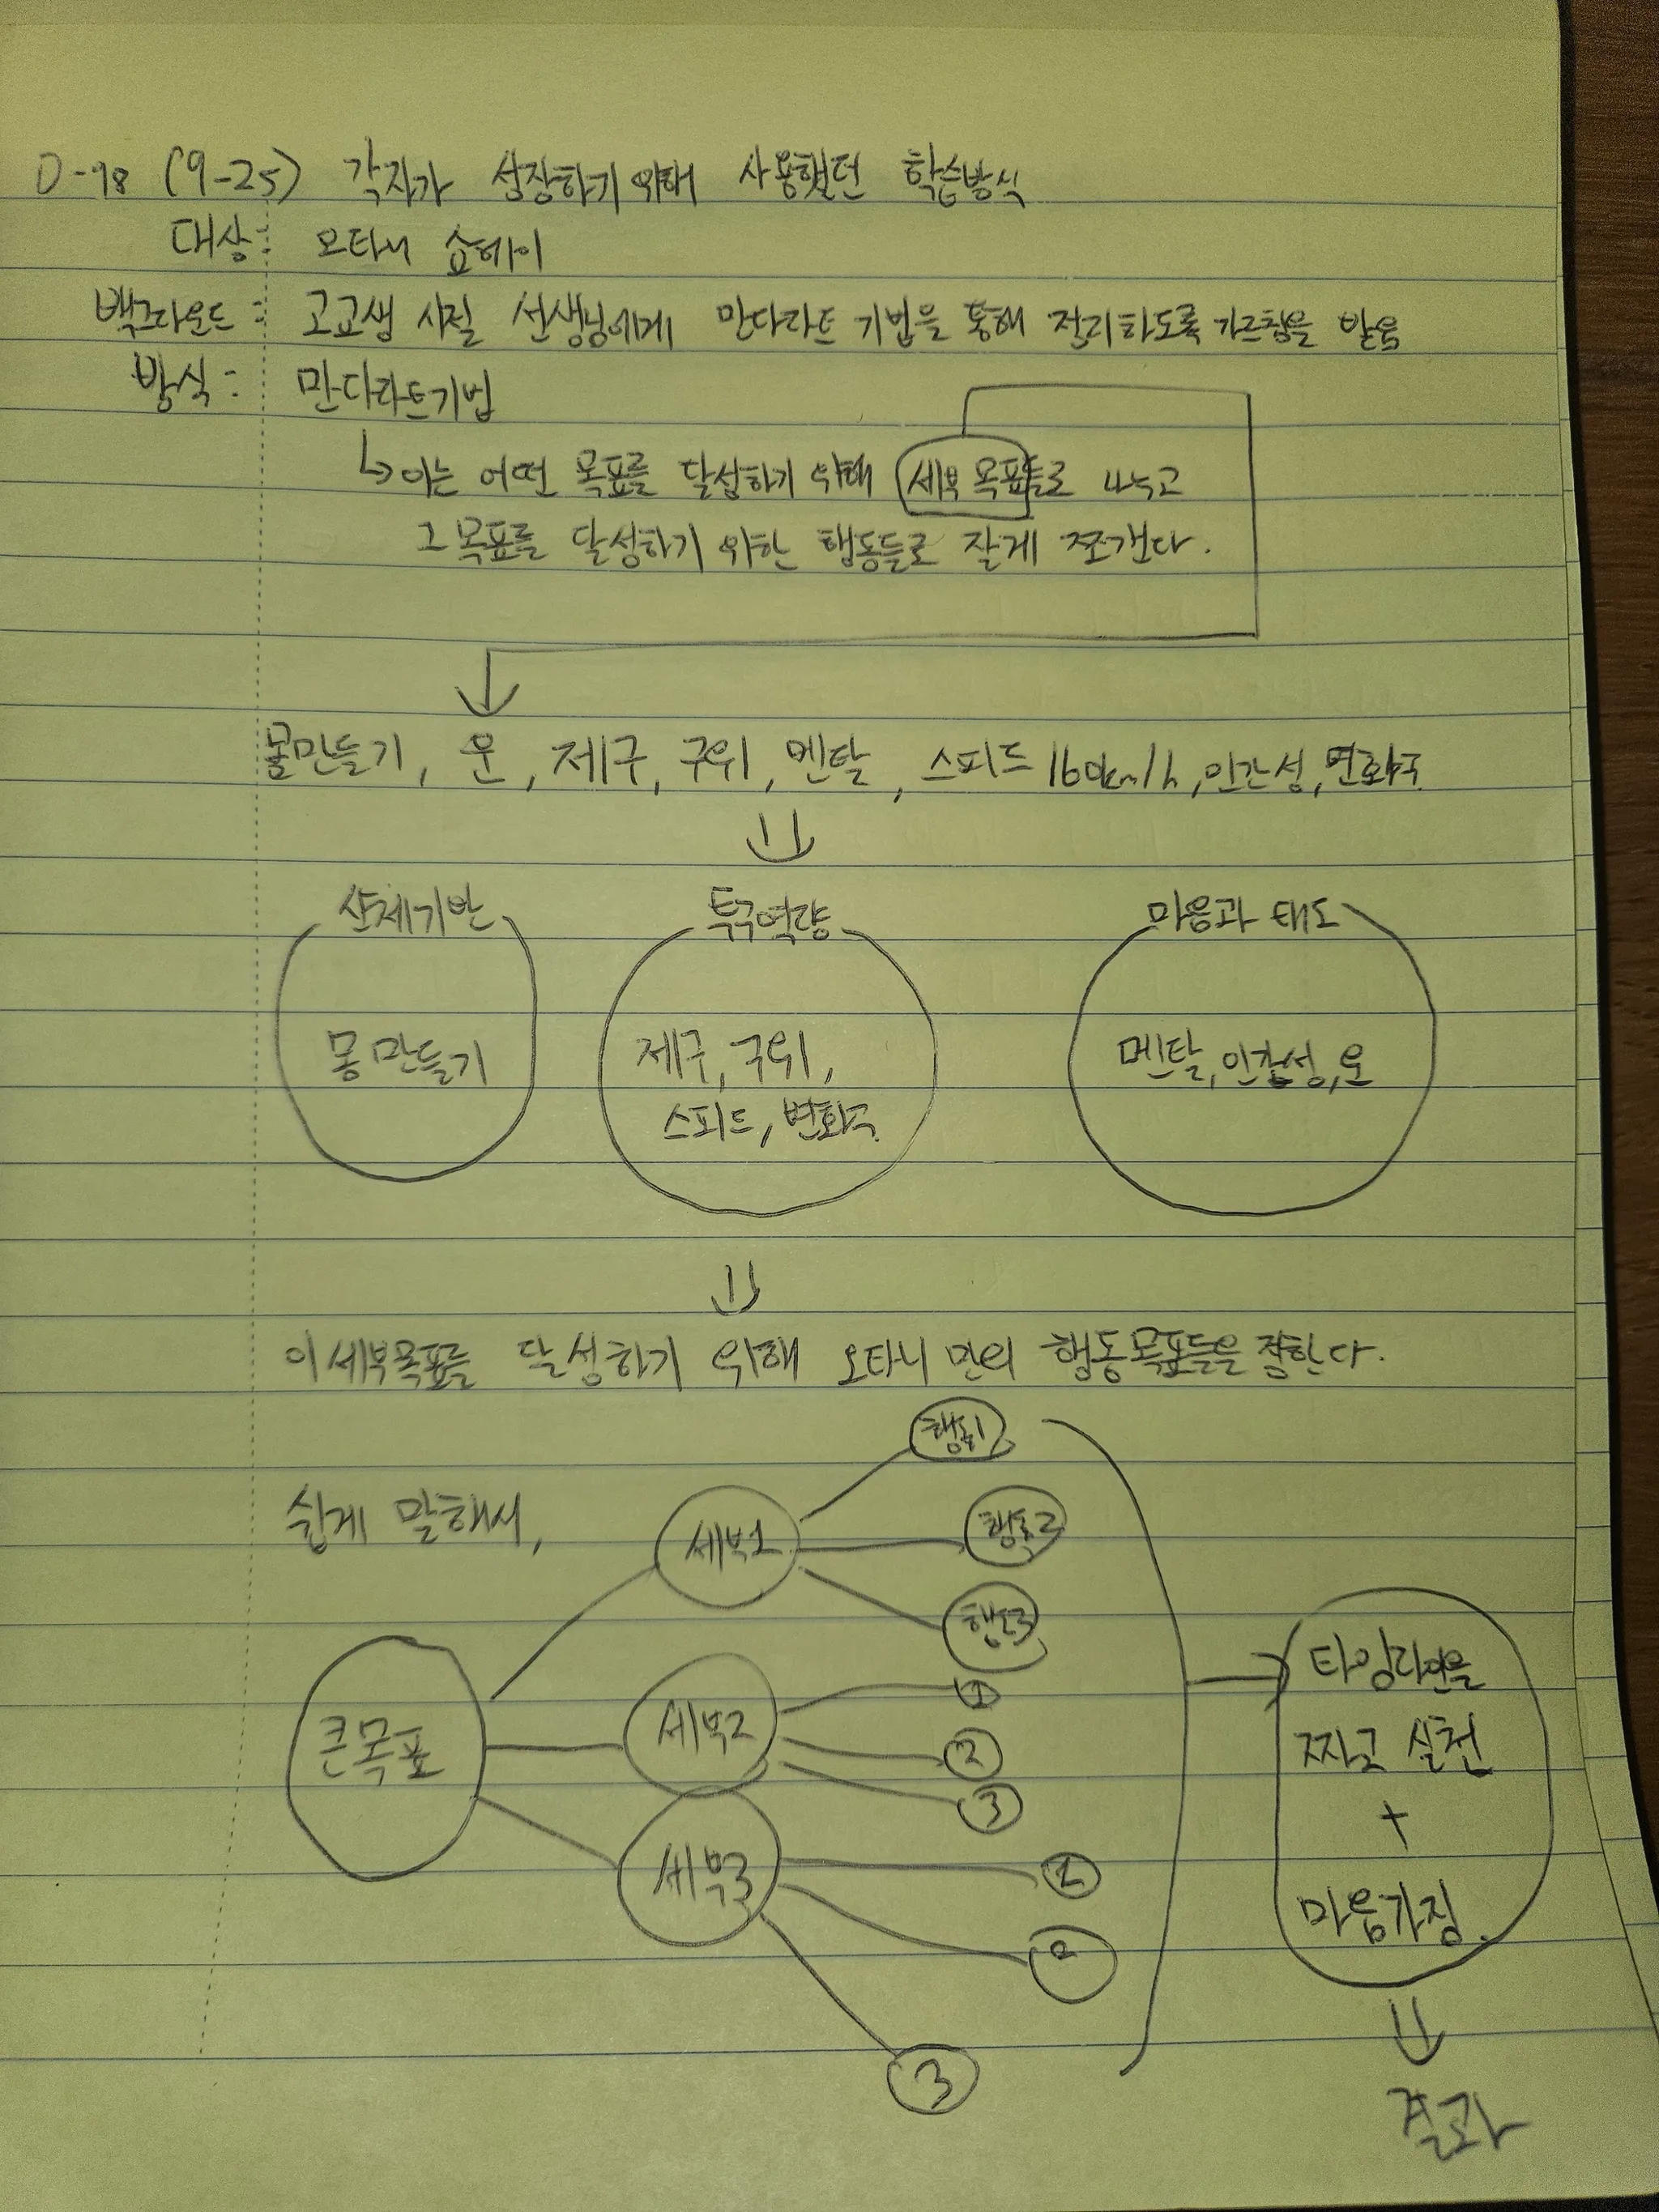 D-98 (9-25) 각자가 성장하기 위해 사용했던 학습방식
대상: 오타니 쇼헤이
백그라운드: 고교생 시절 선생님에게 만다라트 기법을 통해 정리하도록 가르침을 받음
방식: 만다라트기법
↳이는 어떤 목표를 달성하기 위해 세부 목표들로 나누고
그 목표를 달성하기 위한 행동들로 잘게 쪼갠다.
몸만들기, 운, 제구, 구위, 멘탈, 스피드 160km/h, 인간성, 변화구
신체기반 투구역량 마음과 태도
몸 만들기 제구, 구위, 멘탈, 인간성, 운
스피드, 변화구
이 세부목표를 달성하기 위해 오타니 만의 행동목표들을 정한다.
행동1
쉽게 말해서, 세부1 행동2
행동3
타임라인을
세부2 ①
큰목표 ② 짜고 실천
③
+
세부3 1
마음가짐.
2
3
결과